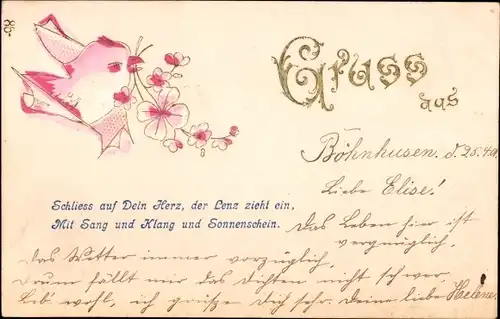 86-
Gruss
aus
Böhnhusen. d. 28.4.01
Liebe Elise!
Schliess auf Dein Herz, der Lenz zieht ein,
Mit Sang und Klang und Sonnenschein.
Das Leben hier ist
vergnüglich,
das Wetter immer vorzüglich,
drum fällt mir das dichten nicht schwer,
Leb' wohl, ich grüßen Dich sehr. deine liebe Helene.